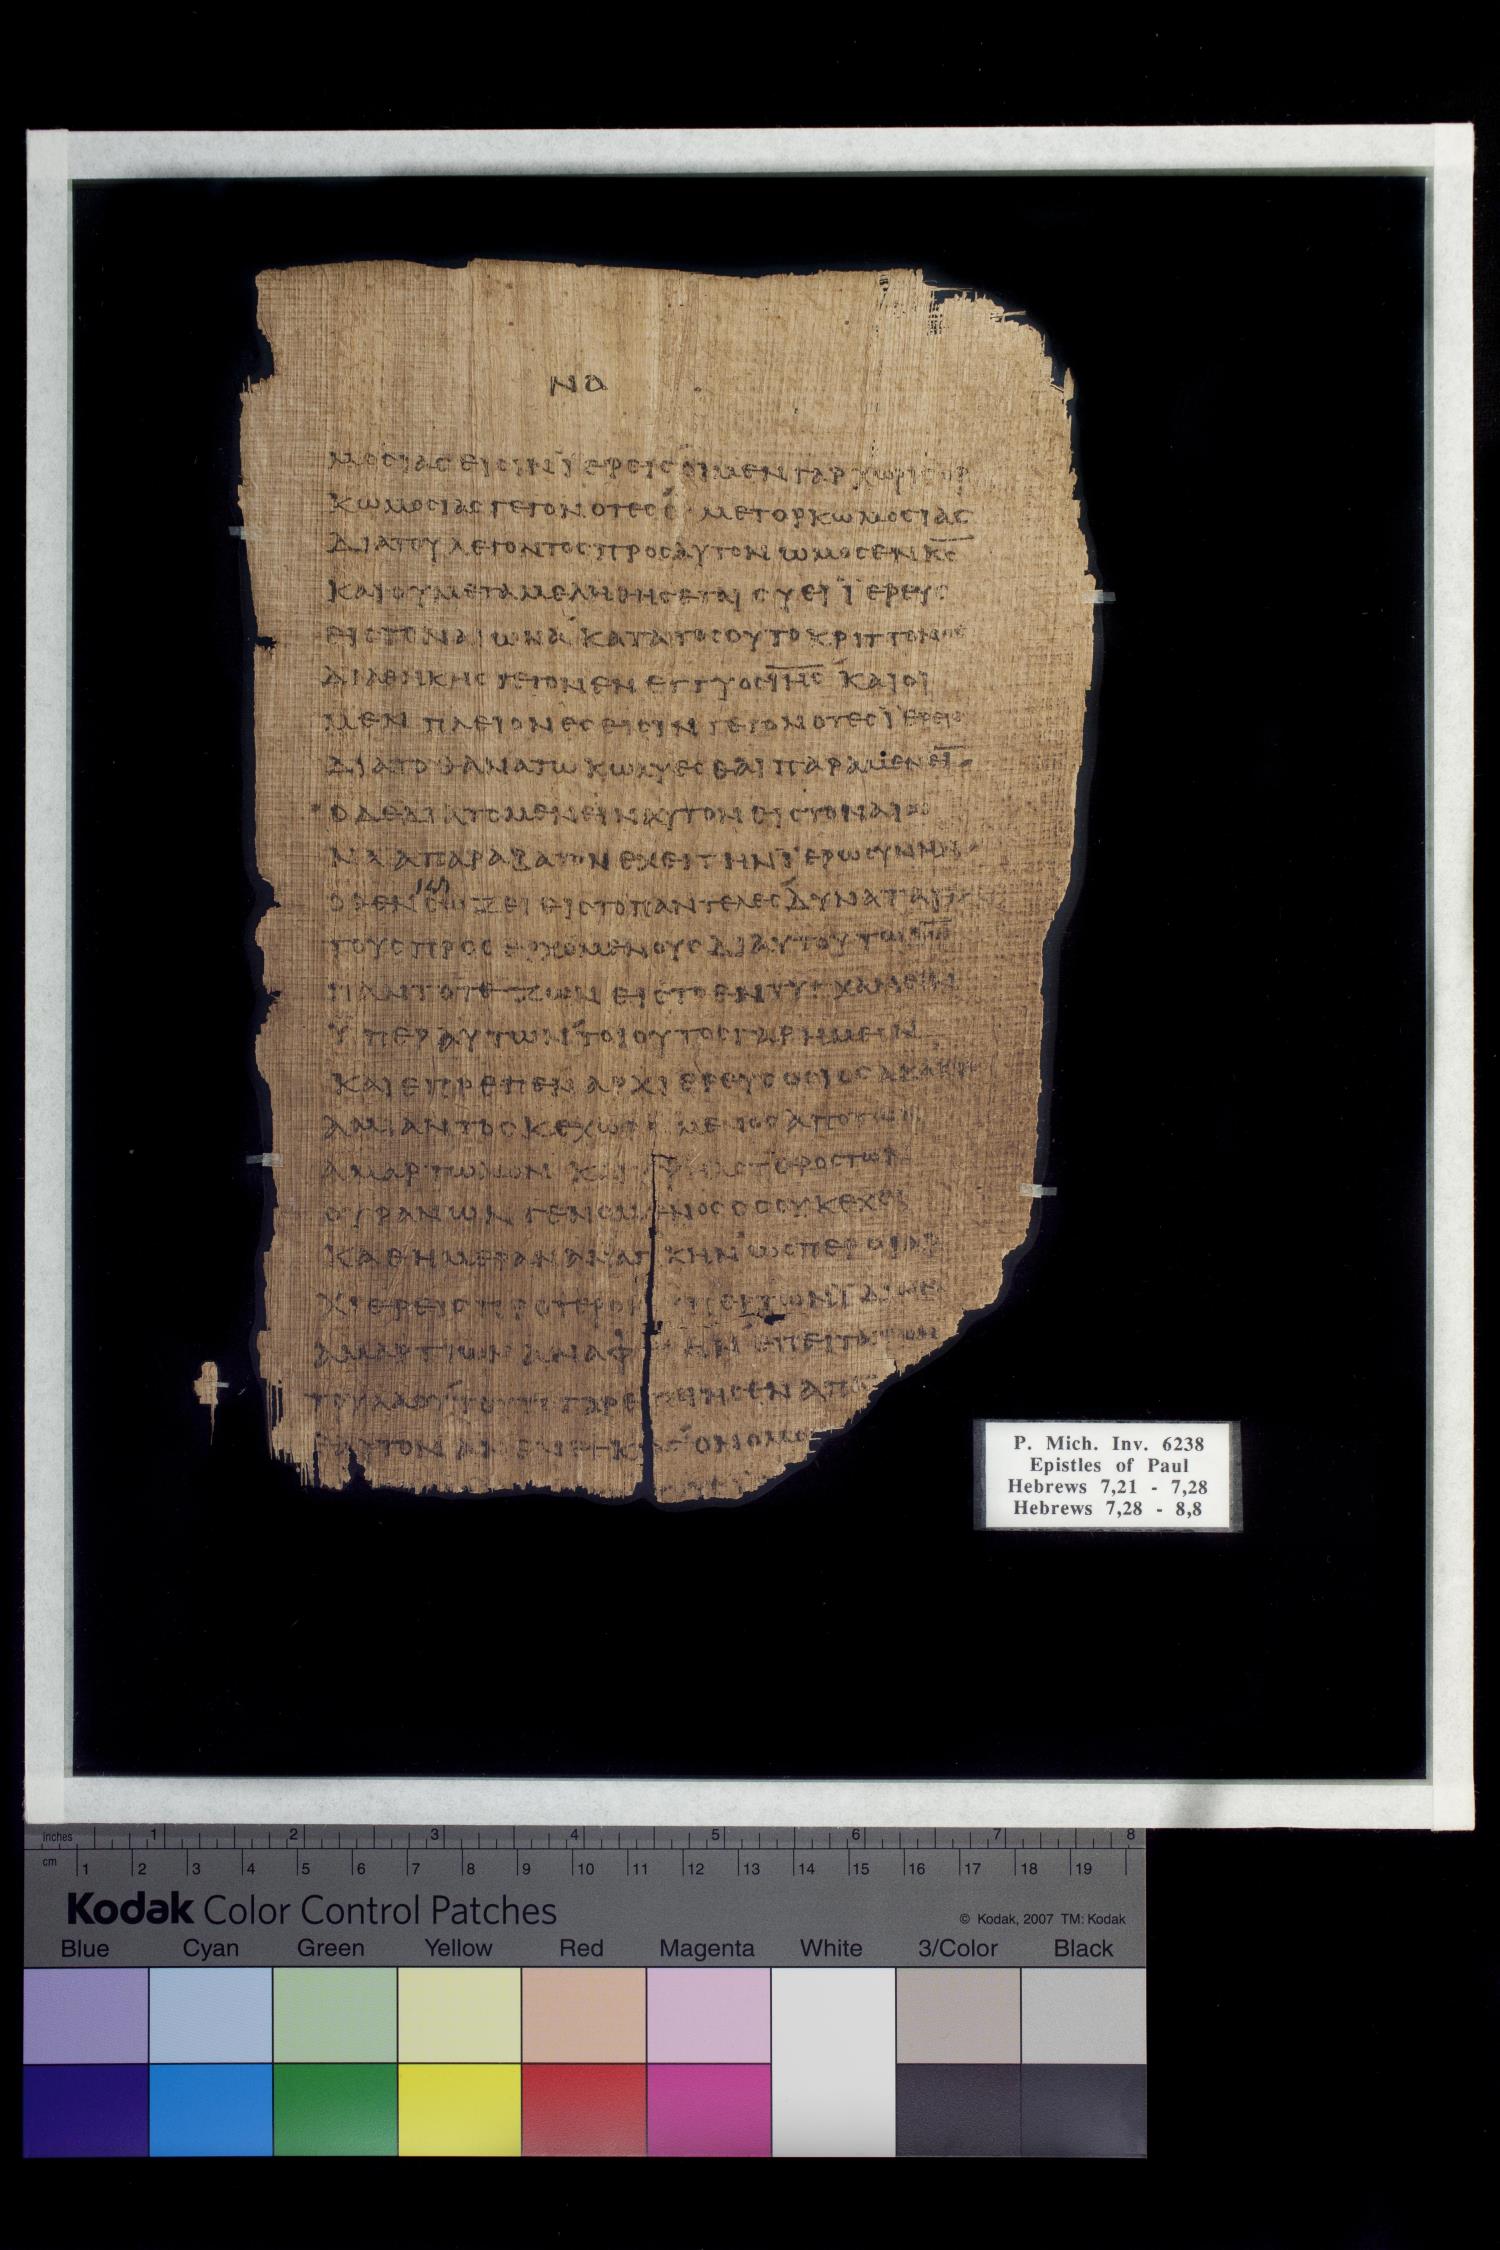 ΝΑ
ΜΟΣΙΑΣ ΕΙΣΙΝ ΪΕΡΕΙΣ ΟΙ ΜΕΝ ΓΑΡ ΧΩΡΙΣ ΟΡ
ΚΩΜΟΣΙΑΣ ΓΕΓΟΝΟΤΕΣ Ο ΜΕΤ ΟΡΚΩΜΟΣΙΑΣ
ΔΙΑ ΤΟΥ ΛΕΓΟΝΤΟΣ ΠΡΟΣ ΑΥΤΟΝ ΩΜΟΣΕΝ Κ̅Σ̅
ΚΑΙ ΟΥ ΜΕΤΑΜΕΛΗΘΗΣΕΤΑΙ ΣΥ ΕΙ ΪΕΡΕΥΣ
ΕΙΣ ΤΟΝ ΑΙΩΝΑ ΚΑΤΑ ΤΟΣΟΥΤΟ ΚΡΙΤΤΟΝΟΣ
ΔΙΑΘΗΚΗΣ ΓΕΓΟΝΕΝ ΕΓΓΥΟΣ Ι̅Η̅Σ̅ ΚΑΙ ΟΙ
ΜΕΝ ΠΛΕΙΟΝΕΣ ΕΙΣΙΝ ΓΕΓΟΝΟΤΕΣ ΪΕΡΕΙΣ
ΔΙΑ ΤΟ ΘΑΝΑΤΩ ΚΩΛΥΕΣΘΑΙ ΠΑΡΑΜΕΝΕΙ̅
Ο ΔΕ ΔΙΑ ΤΟ ΜΕΝΕΙΝ ΑΥΤΟΝ ΕΙΣ ΤΟΝ ΑΙΩ
ΝΑ ΑΠΑΡΑΒΑΤΟΝ ΕΧΕΙ ΤΗΝ ΪΕΡΩΣΥΝΗΝ
ΟΘΕΝ ΣΩΖΕΙ ΕΙΣ ΤΟ ΠΑΝΤΕΛΕΣ ΔΥΝΑΤΑΙ
ΤΟΥΣ ΠΡΟΣΕΡΧΟΜΕΝΟΥΣ ΔΙ ΑΥΤΟΥ ΤΩ Θ̅Ω̅
ΠΑΝΤΟΤΕ ΖΩΝ ΕΙΣ ΤΟ ΕΝΤΥΓΧΑΝΕΙΝ
ΫΠΕΡ ΑΥΤΩΝ ΤΟΙΟΥΤΟΣ ΓΑΡ ΗΜΕΙΝ
ΚΑΙ ΕΠΡΕΠΕΝ ΑΡΧΙΕΡΕΥΣ ΟΣΙΟΣ ΑΚΑΚΟΣ
ΑΜΙΑΝΤΟΣ ΚΕΧΩΡΙΣΜΕΝΟΣ ΑΠΟ ΤΩΝ
ΑΜΑΡΤΩΛΩΝ ΚΑΙ ΫΨΗΛΟΤΕΡΟΣ ΤΩΝ
ΟΥΡΑΝΩΝ ΓΕΝΟΜΕΝΟΣ ΟΣ ΟΥΚ ΕΧΕΙ
ΚΑΘ ΗΜΕΡΑΝ ΑΝΑΓΚΗΝ ΩΣΠΕΡ ΟΙ ΑΡ
ΧΙΕΡΕΙΣ ΠΡΟΤΕΡΟΝ ΥΠΕΡ ΤΩΝ ΪΔΙΩΝ
ΑΜΑΡΤΙΩΝ ΑΝΑΦΕΡΕΙΝ ΕΠΕΙΤΑ ΤΩΝ
ΤΟΥ ΛΑΟΥ ΤΟΥΤΟ ΓΑΡ ΕΠΟΙΗΣΕΝ
ΕΑΥΤΟΝ ΑΝΕΝΕΓΚΑΣ Ο ΝΟΜΟ
P. Mich. Inv. 6238
Epistles of Paul
Hebrews 7,21 - 7,28
Hebrews 7,28 - 8,8
inches 1 2 3 4 5 6 7 8
cm 1 2 3 4 5 6 7 8 9 10 11 12 13 14 15 16 17 18 19
Kodak Color Control Patches © Kodak, 2007 TM: Kodak
Blue Cyan Green Yellow Red Magenta White 3/Color Black